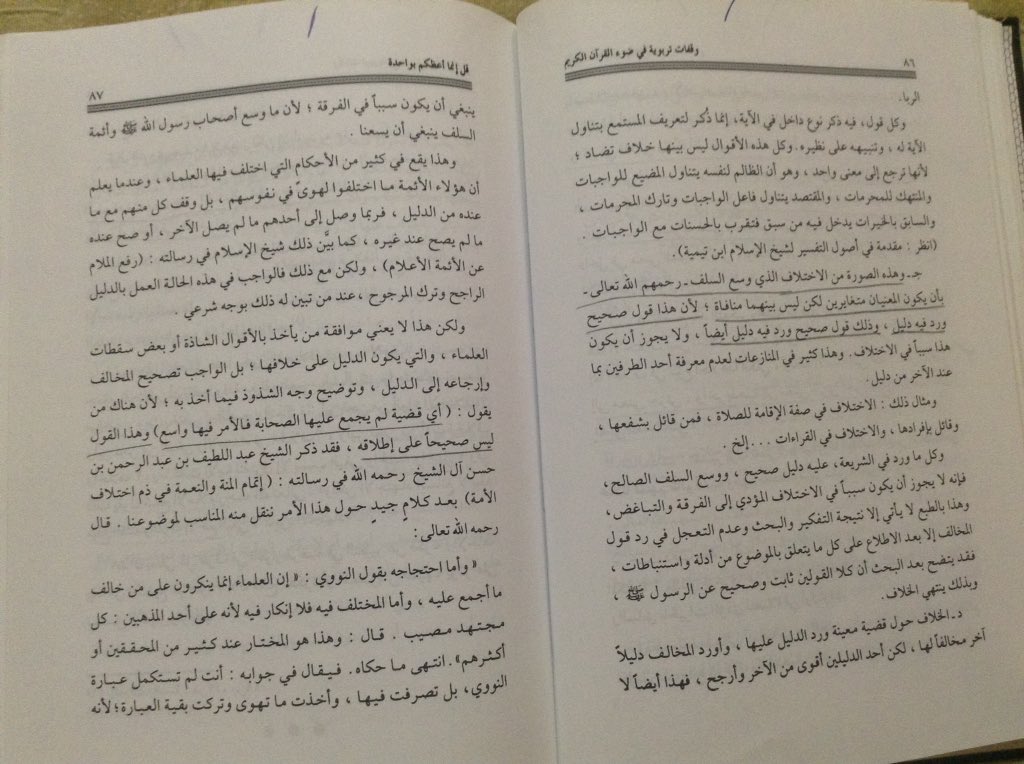 ٨٦
وقفات تربوية في ضوء القرآن الكريم
الربا.
وكل قول، فيه ذكر نوع داخل في الآية، إنما ذُكر لتعريف المستمع بتناول
الآية له ، وتنبيهه على نظيره. وكل هذه الأقوال ليس بينها خلاف تضاد ؛
لأنها ترجع إلى معنى واحد ، وهو أن الظالم لنفسه يتناول المضيع للواجبات
والمنتهك للمحرمات ، والمقتصد يتناول فاعل الواجبات وتارك المحرمات ،
والسابق بالخيرات يدخل فيه من سبق فتقرب بالحسنات مع الواجبات .
(انظر : مقدمة في أصول التفسير لشيخ الإسلام ابن تيمية).
جـ ـ وهذه الصورة من الاختلاف الذي وسع السلف ـ رحمهم الله تعالى ـ
بأن يكون المعنيان متغايرين لكن ليس بينهما منافاة ؛ لأن هذا قول صحيح
ورد فيه دليل ، وذلك قول صحيح ورد فيه دليل أيضاً ، ولا يجوز أن يكون
هذا سبباً في الاختلاف. وهذا كثير في المنازعات لعدم معرفة أحد الطرفين بما
عند الآخر من دليل.
ومثال ذلك : الاختلاف في صفة الإقامة للصلاة ، فمن قائل بشفعها ،
وقائل بإفرادها ، والاختلاف في القراءات . . . إلخ .
وكل ما ورد في الشريعة، عليه دليل صحيح ، ووسع السلف الصالح ،
فإنه لا يجوز أن يكون سبباً في الاختلاف المؤدي إلى الفرقة والتباغض،
وهذا بالطبع لا يأتي إلا نتيجة التفكير والبحث وعدم التعجل في رد قول
المخالف إلا بعد الاطلاع على كل ما يتعلق بالموضوع من أدلة واستنباطات ،
فقد يتضح بعد البحث أن كلا القولين ثابت وصحيح عن الرسول ﷺ ،
وبذلك ينتهي الخلاف.
د ـ الخلاف حول قضية معينة ورد الدليل عليها ، وأورد المخالف دليلاً
آخر مخالفاً لها ، لكن أحد الدليلين أقوى من الآخر وأرجح ، فهذا أيضاً لا
قل إنما أعظكم بواحدة
٨٧
ينبغي أن يكون سبباً في الفرقة ؛ لأن ما وسع أصحاب رسول الله ﷺ وأئمة
السلف ينبغي أن يسعنا .
وهذا يقع في كثير من الأحكام التي اختلف فيها العلماء ، وعندما يعلم
أن هؤلاء الأئمة ما اختلفوا لهوىً في نفوسهم ، بل وقف كل منهم مع ما
عنده من الدليل ، فربما وصل إلى أحدهم ما لم يصل الآخر ، أو صح عنده
ما لم يصح عند غيره ، كما بيَّن ذلك شيخ الإسلام في رسالته : (رفع الملام
عن الأئمة الأعلام) ، ولكن مع ذلك فالواجب في هذه الحالة العمل بالدليل
الراجح وترك المرجوح ، عند من تبين له ذلك بوجه شرعي .
ولكن هذا لا يعني موافقة من يأخذ بالأقوال الشاذة أو بعض سقطات
العلماء ، والتي يكون الدليل على خلافها ؛ بل الواجب تصحيح المخالف
وإرجاعه إلى الدليل ، وتوضيح وجه الشذوذ فيما أخذ به ؛ لأن هناك من
يقول : (أي قضية لم يجمع عليها الصحابة فالأمر فيها واسع) وهذا القول
ليس صحيحاً على إطلاقه ، فقد ذكر الشيخ عبد اللطيف بن عبد الرحمن بن
حسن آل الشيخ رحمه الله في رسالته : (إتمام المنة والنعمة في ذم اختلاف
الأمة) بعد كلام جيدٍ حول هذا الأمر ننقل منه المناسب لموضوعنا . قال
رحمه الله تعالى:
«وأما احتجاجه بقول النووي : « إن العلماء إنما ينكرون على من خالف
ما أجمع عليه ، وأما المختلف فيه فلا إنكار فيه لأنه على أحد المذهبين : كل
مجتهد مصيب . قال : وهذا هو المختار عند كثير من المحققين أو
أكثرهم». انتهى ما حكاه. فيقال في جوابه : أنت لم تستكمل عبارة
النووي، بل تصرفت فيها ، وأخذت ما تهوى وتركت بقية العبارة؛ لأنه